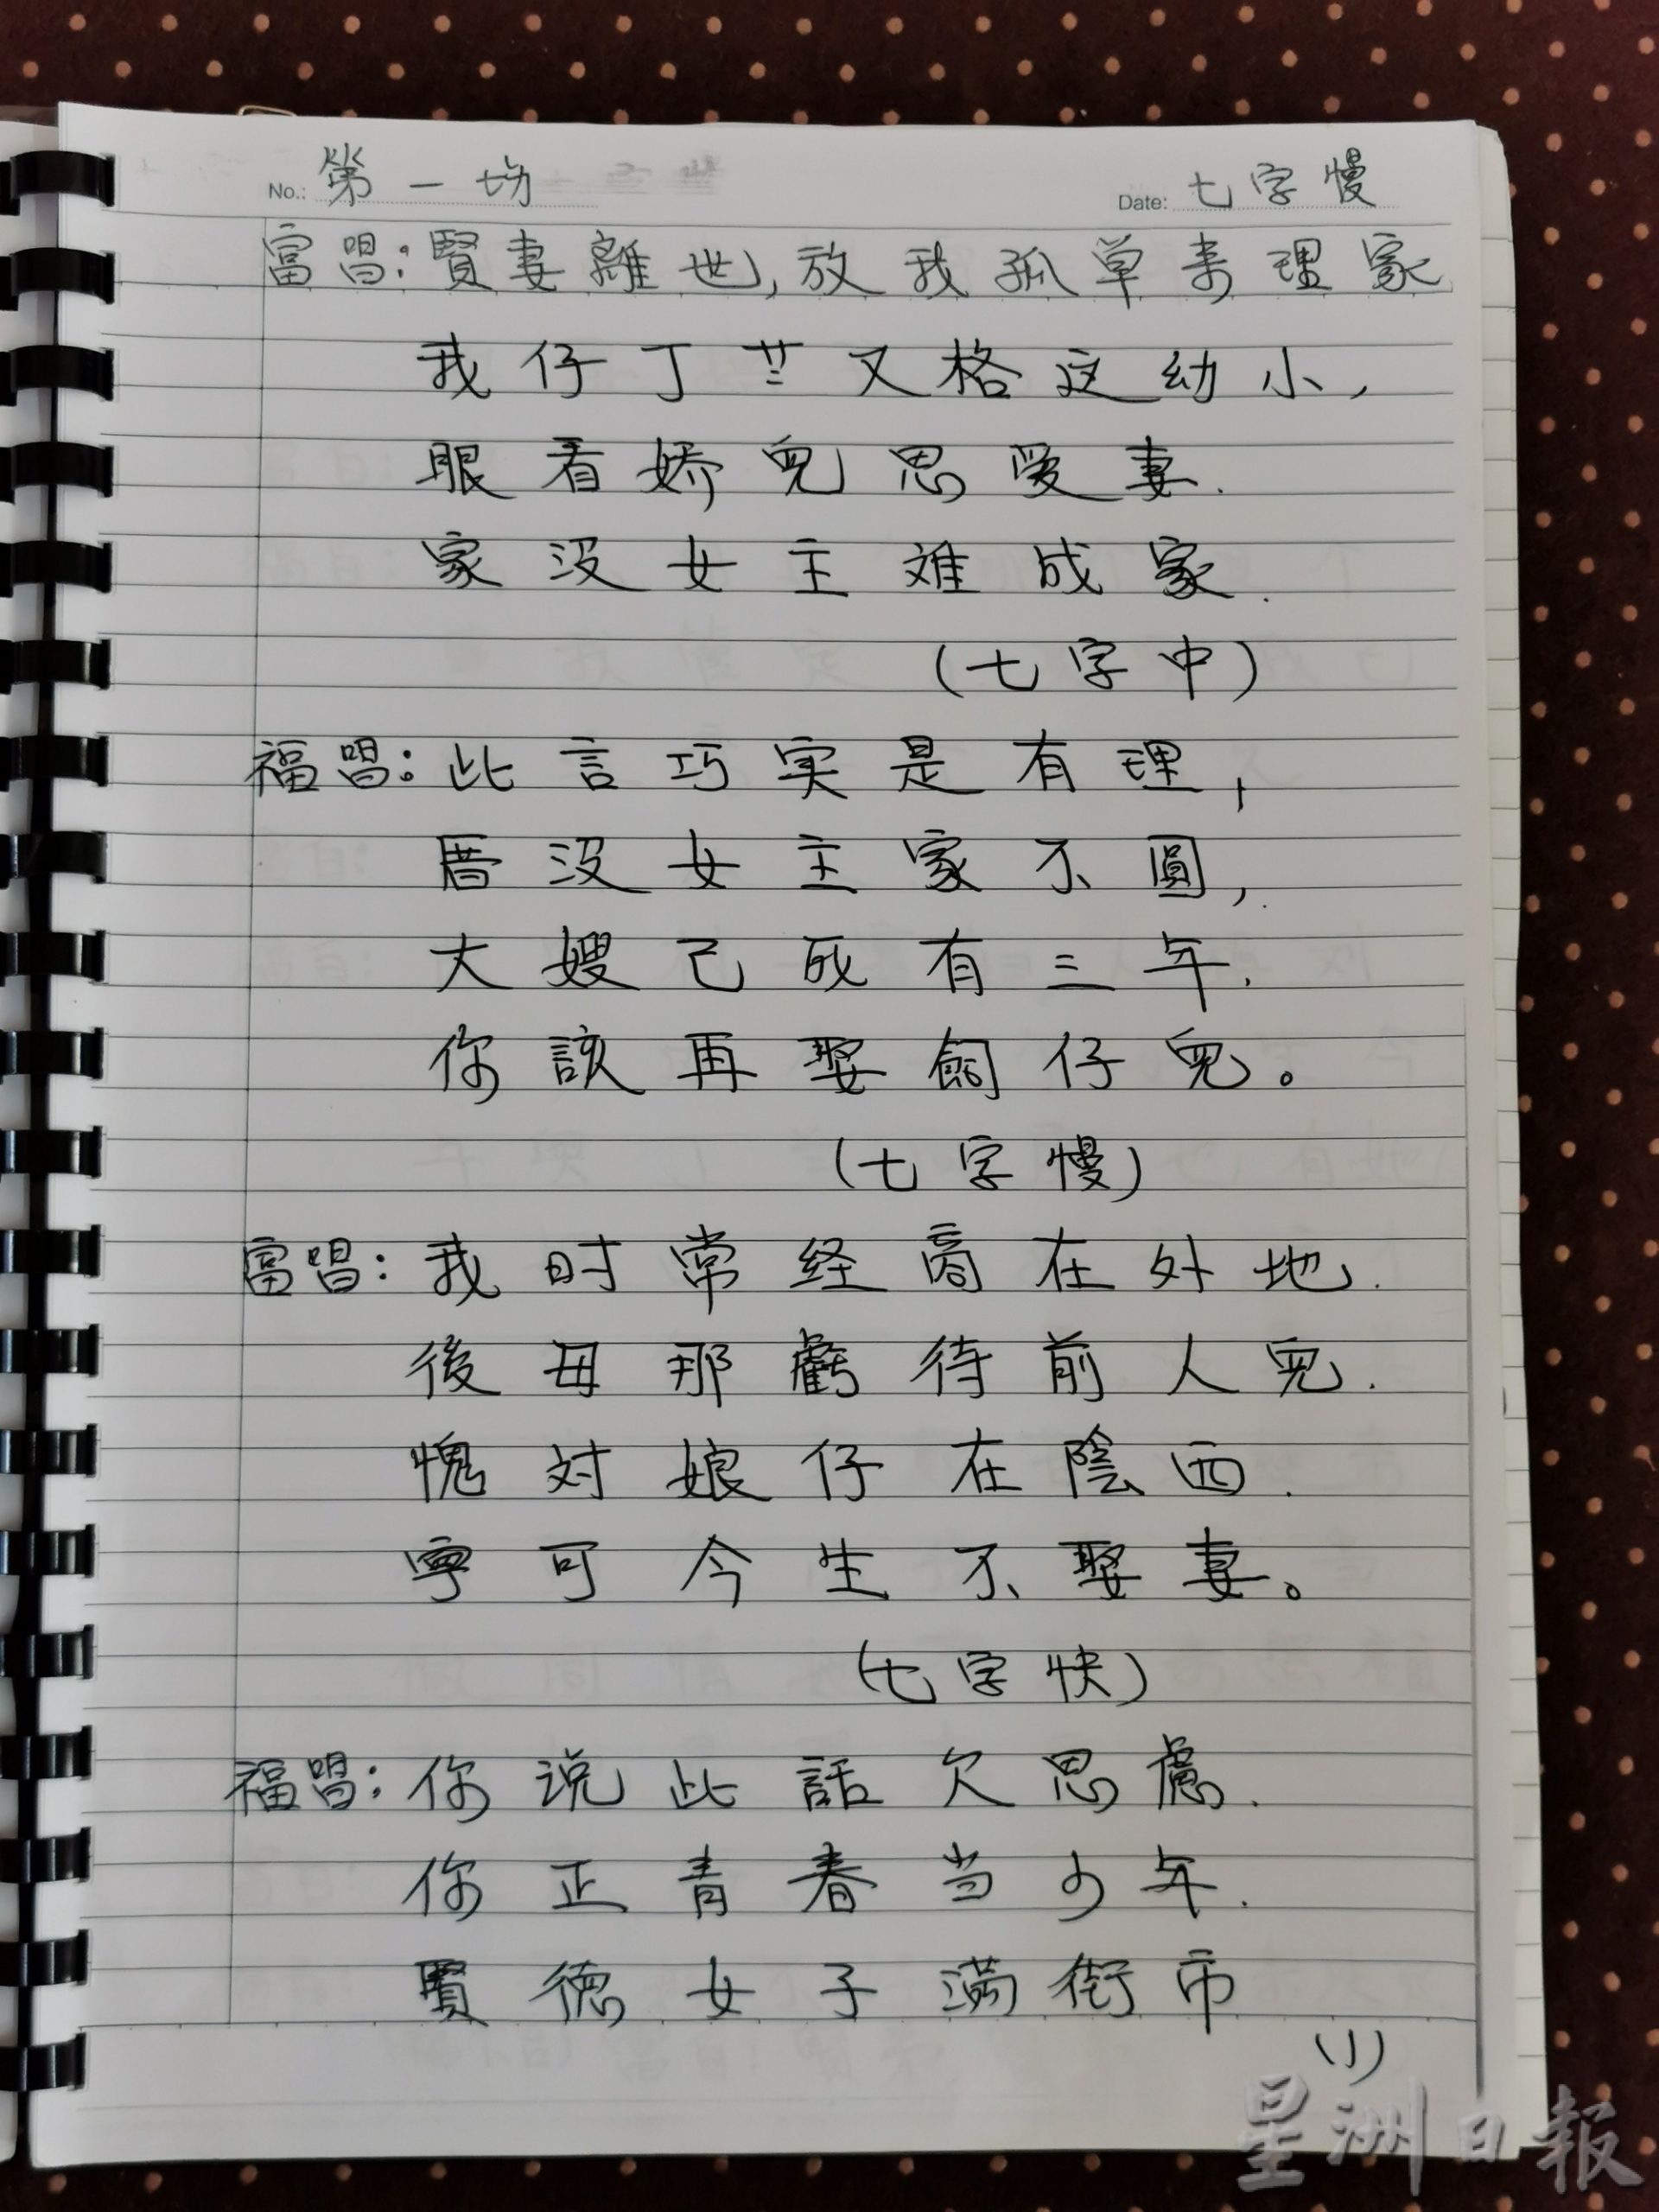 No.: 第一场 Date: 七字慢
富唱:賢妻離世,放我孤單来理家
我仔丁廿又格这幼小,
眼看娇兒思爱妻.
家没女主难成家.
(七字中)
福唱:此言巧实是有理,
厝没女主家不圓,
大嫂己死有三年.
你該再娶飼仔兒。
(七字慢)
富唱:我时常经商在外地.
後母那虧待前人兒.
愧对娘仔在陰西.
寧可今生不娶妻。
(七字快)
福唱:你说此話欠思慮.
你正青春当少年.
賢德女子满街市
(1)
星洲日報